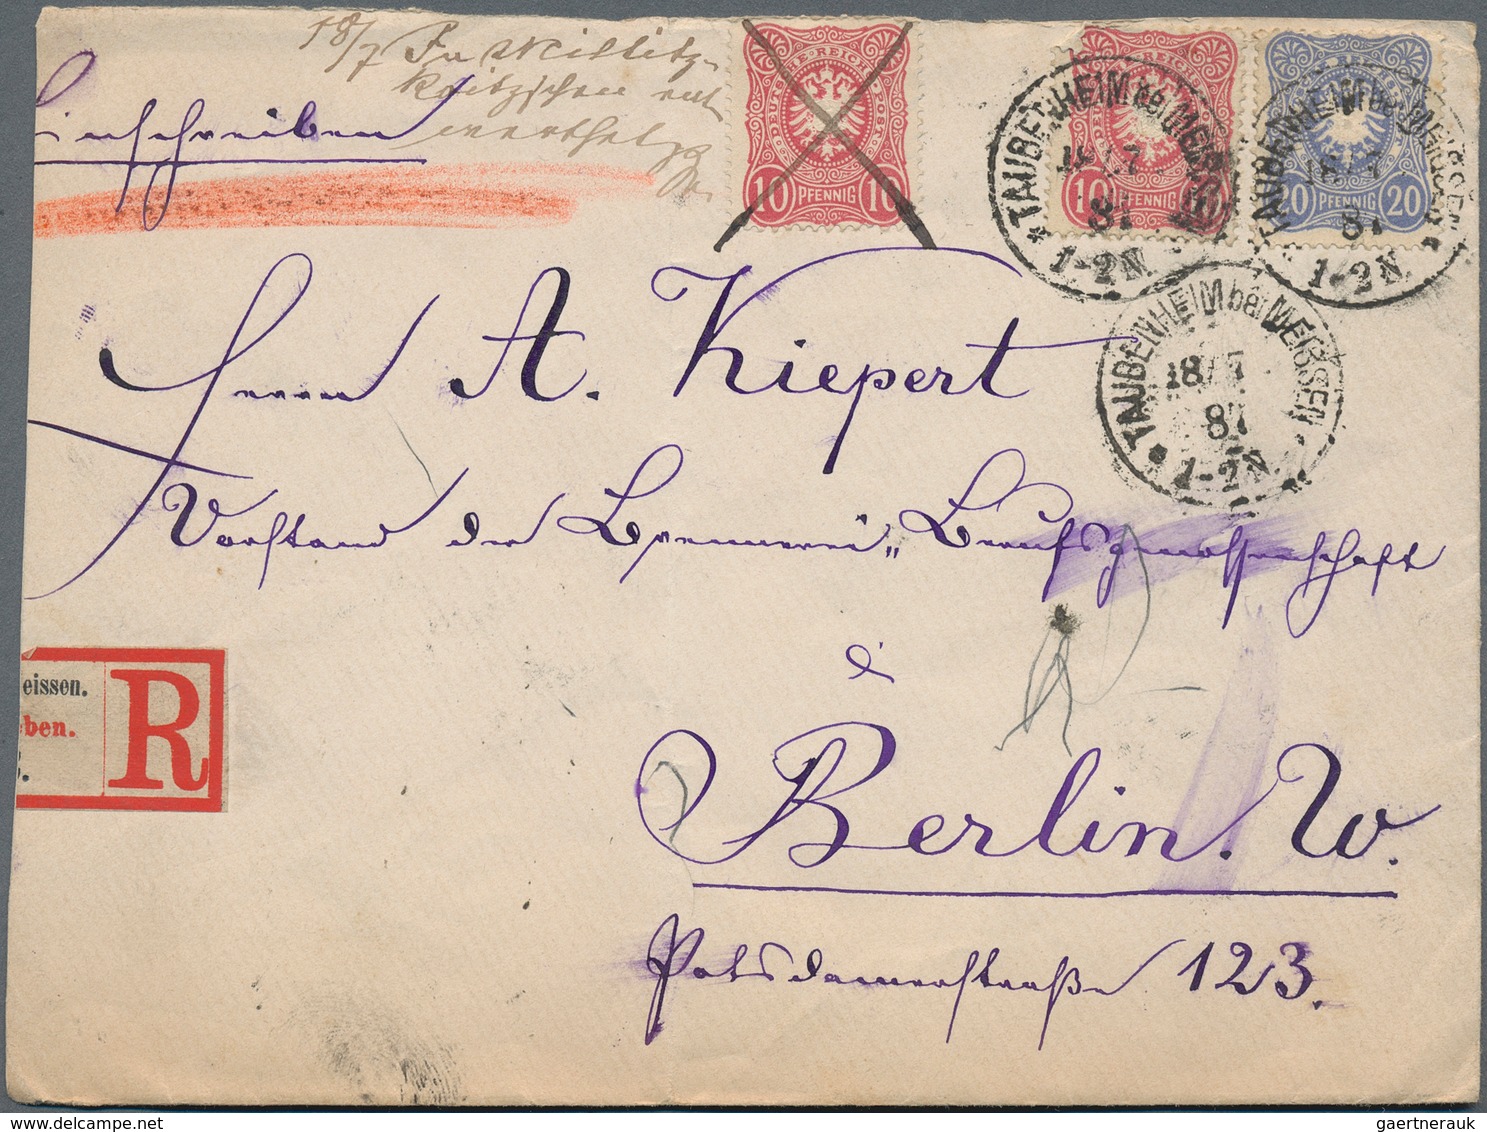 18/7 In Miltitz-
Roitzschen ent
werthet
Einschreiben
DEUTSCHE REICHS-POST
10 PFENNIG 10
10 PFENNIG
20 PFENNIG 20
* TAUBENHEIM bei MEISSEN *
18/7
87
1-2N.
* TAUBENHEIM bei MEISSEN *
18/7
87
1-2N.
* TAUBENHEIM bei MEISSEN *
18/7
87
1-2N.
Herrn A. Kiepert
Vorstand der Brennerei-Berufsgenossenschaft
eissen.
ben.
R
Berlin. W.
Potsdamerstraße 123.
gaertnerauk @ delcampe.net